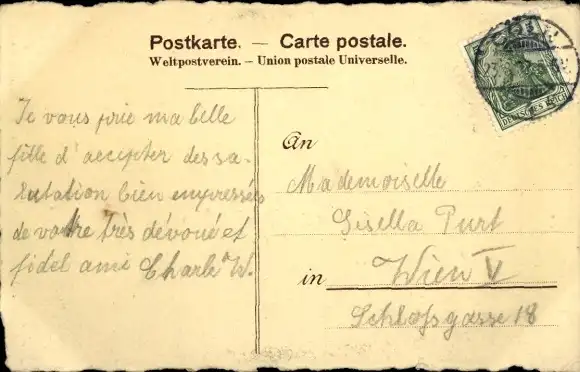 Postkarte. — Carte postale.
Weltpostverein. – Union postale Universelle.
Je vous prie ma belle
fille d'accepter des sa-
lutation bien empressées
de votre très dévoué et
fidel ami Charle W.
An
Mademoiselle
Gisella Purt
in Wien V
Schloßgasse 18
DEUTSCHES REICH